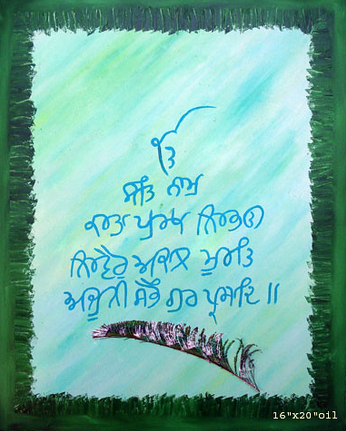 ੴ
ਸਤਿ ਨਾਮੁ
ਕਰਤਾ ਪੁਰਖੁ ਨਿਰਭਉ
ਨਿਰਵੈਰੁ ਅਕਾਲ ਮੂਰਤਿ
ਅਜੂਨੀ ਸੈਭੰ ਗੁਰ ਪ੍ਰਸਾਦਿ ॥
16"x20"oil